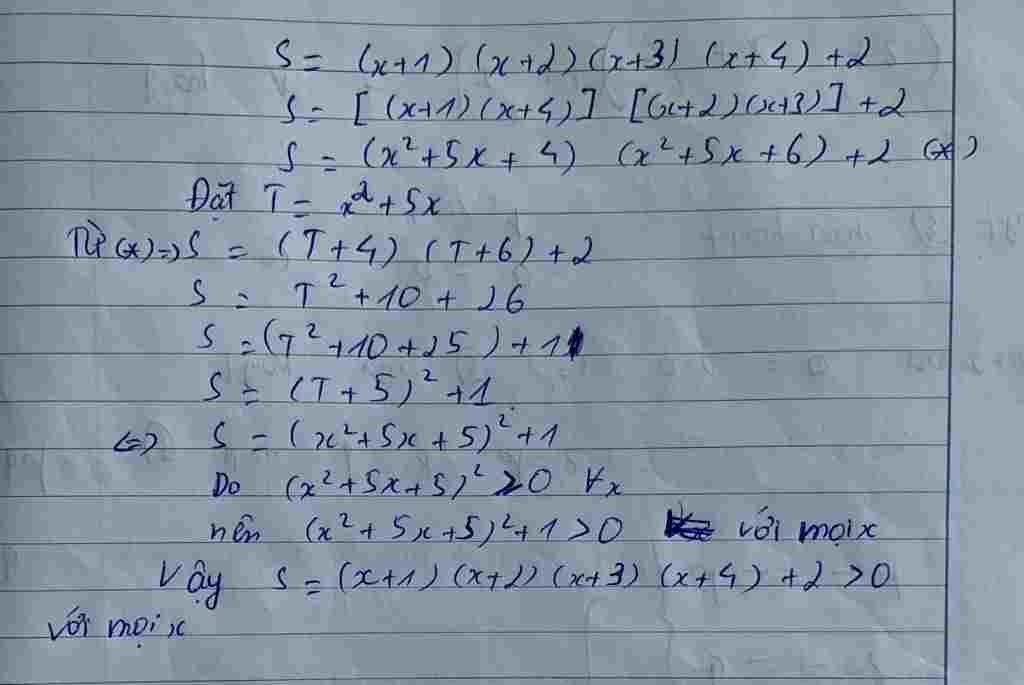 S = (x+1) (x+2) (x+3) (x+4) +2
S = [(x+1)(x+4)] [(x+2)(x+3)] +2
S = (x²+5x+4) (x²+5x+6) +2 (*)
Đặt T = x²+5x
Từ (*) => S = (T+4) (T+6) +2
S = T² +10 + 26
S = (T²+10+25) +1
S = (T+5)² +1
<=> S = (x²+5x+5)² +1
Do (x²+5x+5)² ≥0 ∀x
nên (x²+5x+5)²+1>0 với mọi x
Vậy S = (x+1) (x+2) (x+3) (x+4) +2 >0
với mọi x